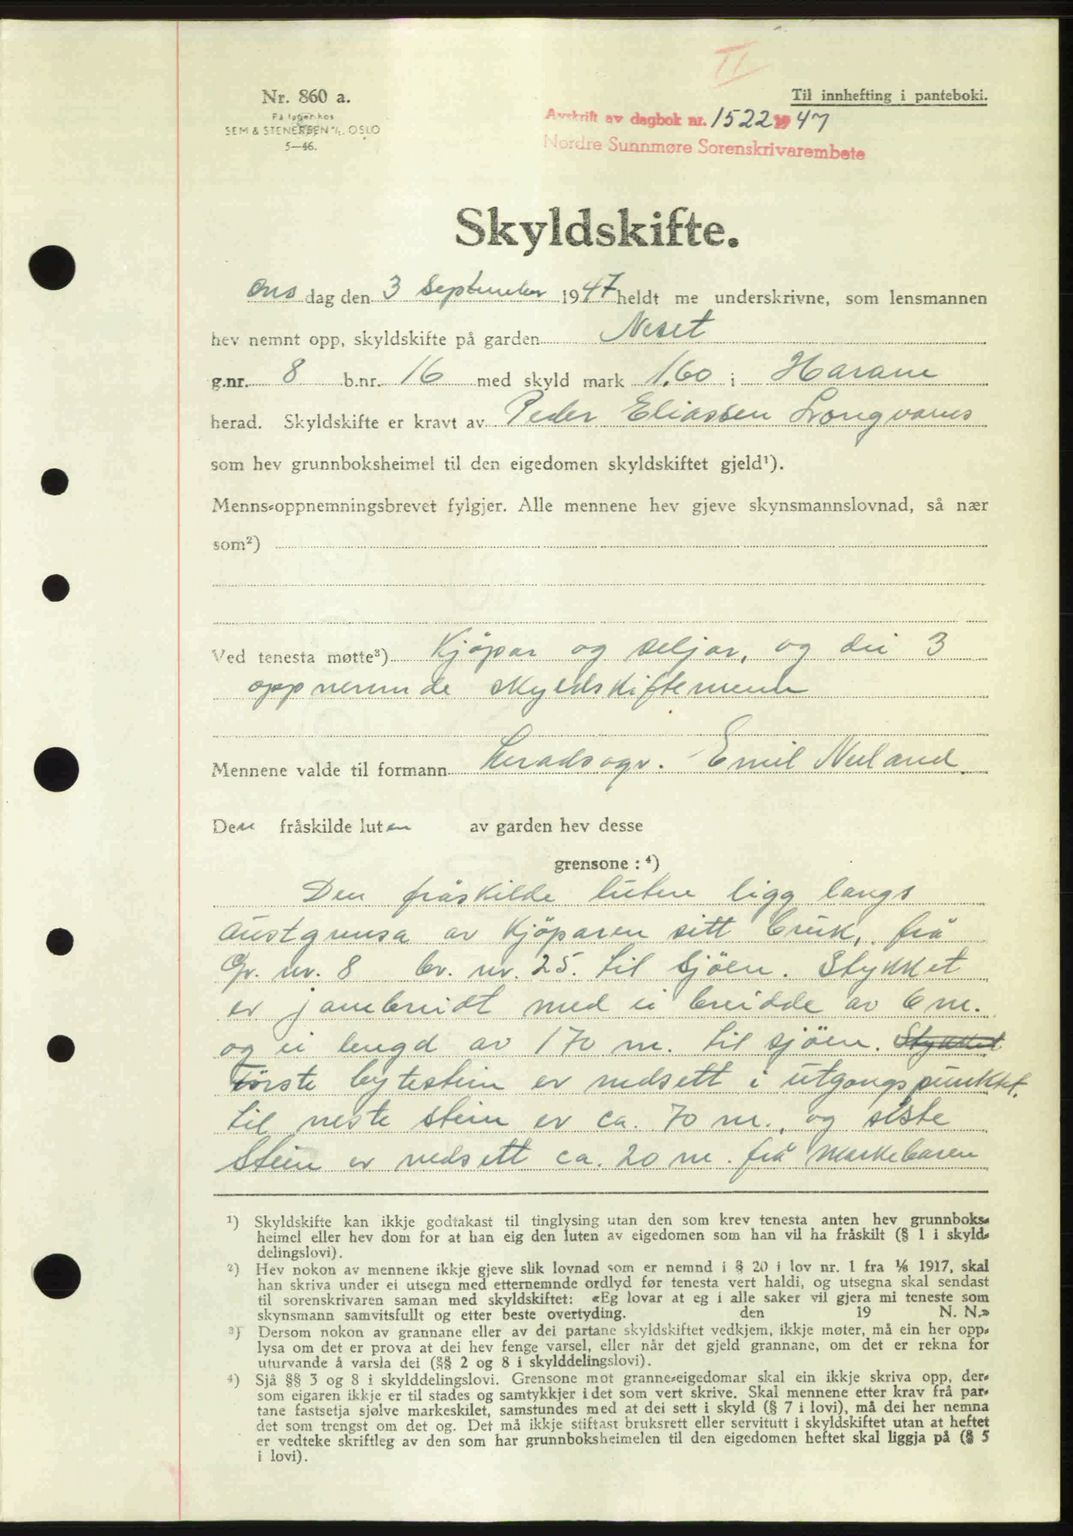 II
Nr. 860 a.
På lager hos
SEM & STENERSEN A/S, OSLO
5—46.
Til innhefting i panteboki.
Avskrift av dagbok nr. 1522 1947
Nordre Sunnmøre Sorenskrivarembete
Skyldskifte.
Ons dag den 3 September 1947 heldt me underskrivne, som lensmannen
hev nemnt opp, skyldskifte på garden Neset
g.nr. 8 b.nr. 16 med skyld mark 1.60 i Haram
herad. Skyldskifte er kravt av Peder Eliassen Longvanes
som hev grunnboksheimel til den eigedomen skyldskiftet gjeld¹).
Menns-oppnemningsbrevet fylgjer. Alle mennene hev gjeve skynsmannslovnad, så nær
som²)
Ved tenesta møtte³) Kjöpar og seljar, og dei 3
oppnemnde skyldskiftemenn
Mennene valde til formann heradsagr. Emil Nuland
Den fråskilde luten av garden hev desse
grensone : ⁴)
Den fråskilde luten ligg langs
austgrensa av kjöparen sitt bruk, frå
Gr. nr. 8 br. nr. 25. til sjöen. Stykket
er jambreidt med ei breidde av 6 m.
og ei lengd av 170 m. til sjöen. Stykket
Förste bytestein er nedsett i utgongspunktet.
til neste stein er ca. 70 m., og siste
Stein er nedsett ca. 20 m. frå marebaren
¹) Skyldskifte kan ikkje godtakast til tinglysing utan den som krev tenesta anten hev grunnboks-
heimel eller hev dom for at han eig den luten av eigedomen som han vil ha fråskilt (§ 1 i skyld-
delingslovi).
²) Hev nokon av mennene ikkje gjeve slik lovnad som er nemnd i § 20 i lov nr. 1 fra ¹/₆ 1917, skal
han skriva under ei utsegn med etternemnde ordlyd før tenesta vert haldi, og utsegna skal sendast
til sorenskrivaren saman med skyldskiftet: «Eg lovar at eg i alle saker vil gjera mi teneste som
skynsmann samvitsfullt og etter beste overtyding. den 19 N. N.»
³) Dersom nokon av grannane eller av dei partane skyldskiftet vedkjem, ikkje møter, må ein her opp-
lysa om det er prova at dei hev fenge varsel, eller når det gjeld grannane, om det er rekna for
uturvande å varsla dei (§§ 2 og 8 i skylddelingslovi).
⁴) Sjå §§ 3 og 8 i skylddelingslovi. Grensone mot granne-eigedomar skal ein ikkje skriva opp, der-
som eigaren ikkje er til stades og samtykkjer i det som vert skrive. Skal mennene etter krav frå par-
tane fastsetja sjølve markeskilet, samstundes med at dei sett i skyld (§ 7 i lovi), må dei her nemna
det som trengst om det og. Det må ikkje stiftast bruksrett eller servitutt i skyldskiftet utan at heftet
er vedteke skriftleg av den som har grunnboksheimelen til den eigedomen heftet skal liggja på (§ 5
i lovi).